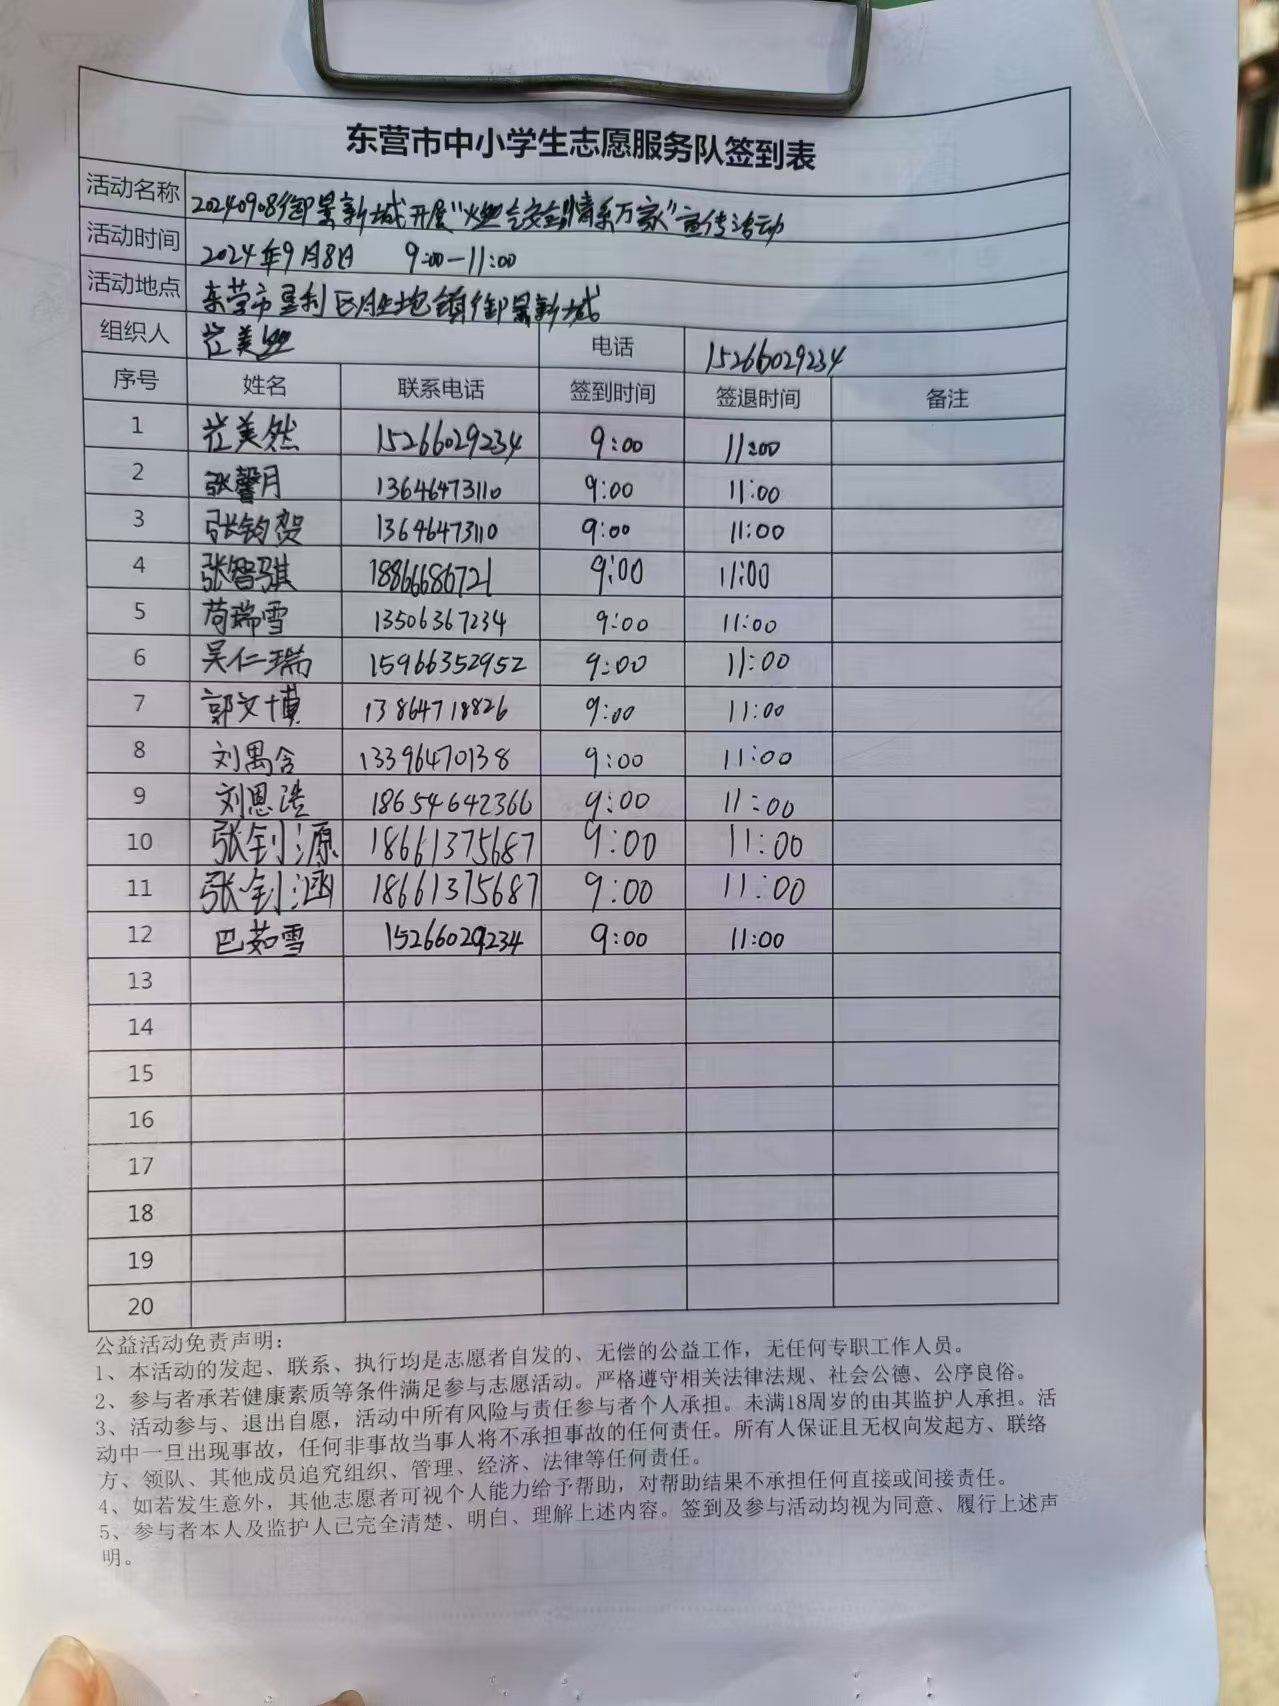 东营市中小学生志愿服务队签到表
活动名称 20240908御景新城开展“燃气安全 情系万家”宣传活动
活动时间 2024年9月8日 9:00-11:00
活动地点 东营市垦利区胜坨镇御景新城
组织人 崔美然 电话 15266029234
序号 姓名 联系电话 签到时间 签退时间 备注
1 崔美然 15266029234 9:00 11:00
2 张馨月 13646473110 9:00 11:00
3 张钧贺 13646473110 9:00 11:00
4 张智骐 18866686721 9:00 11:00
5 荷瑞雪 13506367234 9:00 11:00
6 吴仁瑞 15966352952 9:00 11:00
7 郭文博 13864718826 9:00 11:00
8 刘禺含 13396470138 9:00 11:00
9 刘恩浩 18654642366 9:00 11:00
10 张钊源 18661375687 9:00 11:00
11 张钊涵 18661375687 9:00 11:00
12 巴茹雪 15266029234 9:00 11:00
13
14
15
16
17
18
19
20
公益活动免责声明：
1、本活动的发起、联系、执行均是志愿者自发的、无偿的公益工作，无任何专职工作人员。
2、参与者承若健康素质等条件满足参与志愿活动。严格遵守相关法律法规、社会公德、公序良俗。
3、活动参与、退出自愿，活动中所有风险与责任参与者个人承担。未满18周岁的由其监护人承担。活
动中一旦出现事故，任何非事故当事人将不承担事故的任何责任。所有人保证且无权向发起方、联络
方、领队、其他成员追究组织、管理、经济、法律等任何责任。
4、如若发生意外，其他志愿者可视个人能力给予帮助，对帮助结果不承担任何直接或间接责任。
5、参与者本人及监护人已完全清楚、明白、理解上述内容。签到及参与活动均视为同意、履行上述声
明。